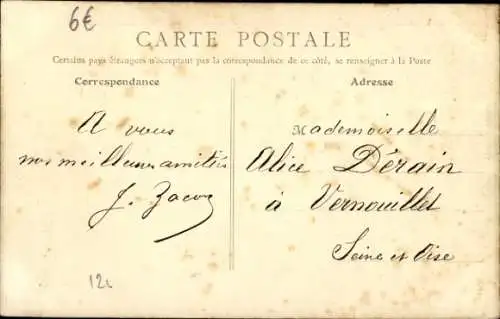 6€
CARTE POSTALE
Certains pays étrangers n'acceptant pas la correspondance de ce côté, se renseigner à la Poste
Correspondance
Adresse
A vous
nos meilleures amitiés
J.
Mademoiselle
Alice Dérain
à Vernouillet
Seine et Oise
12